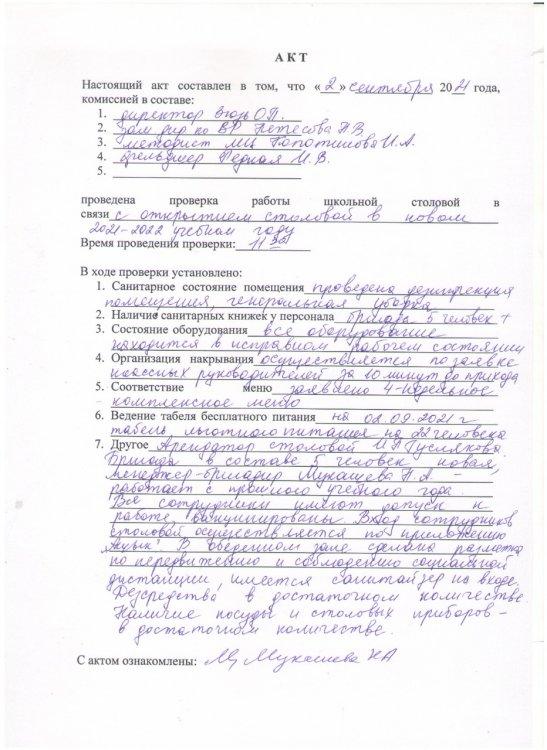 АКТ
Настоящий акт составлен в том, что «2» сентября 2021 года,
комиссией в составе:
1. директор О.П.
2. зам дир по ВР Петесова
3. методист И.А.
4. фельдшер Редкая И.В.
5.
проведена проверка работы школьной столовой в
связи с открытием столовой в новом
2021-2022 учебном году
Время проведения проверки: 11 30
В ходе проверки установлено:
1. Санитарное состояние помещения проведена дезинфекция
помещения, генеральная уборка
2. Наличие санитарных книжек у персонала бригада 5 человек +
3. Состояние оборудования все оборудование
находится в исправном, рабочем состоянии
4. Организация накрывания осуществляется по заявке
классных руководителей за 10 минут до прихода
5. Соответствие меню заявлено 4-недельное
комплексное меню
6. Ведение табеля бесплатного питания на 02.09.2021 г
табель льготного питания на 22 человека
7. Другое Арендатор столовой ИП Гуслякова
Бригада в составе 5 человек новая,
менеджер-бригадир Мукашева Н.А -
работает с прошлого учебного года.
Все сотрудники имеют допуск к
работе, вакцинированы. Вход сотрудников
столовой осуществляется по приложению
"Ашық". В обеденном зале сделана разметка
по передвижению и соблюдению социальной
дистанции, имеется санитайзер на входе.
Дезсредства в достаточном количестве.
Наличие посуды и столовых приборов -
в достаточном количестве.
С актом ознакомлены: Мукашева НА